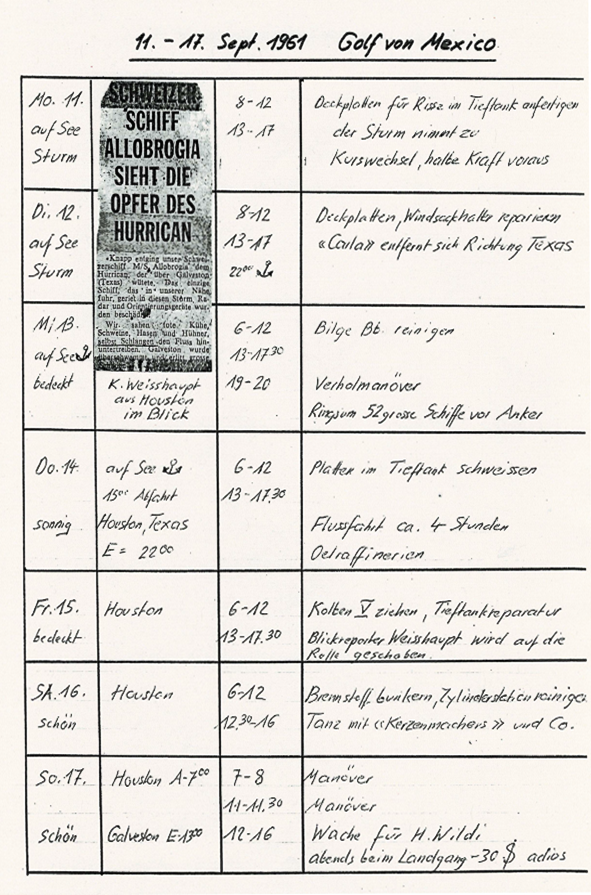 11. – 17. Sept. 1961 Golf von Mexico
Mo. 11.
auf See
Sturm
SCHWEIZER
SCHIFF
ALLOBROGIA
SIEHT DIE
OPFER DES
HURRICAN
«Knapp entging unser Schwei-
zerschiff M/S Allobrogia dem
Hurrican, der über Galveston
(Texas) wütete. Das einzige
Schiff, das in unserer Nähe
fuhr, geriet in diesen Sturm. Ra-
dar und Orientierungsgeräte wur-
den beschädi
Wir sahen tote Kühe,
Schweine, Hasen und Hühner,
selbst Schlangen den Fluss hin-
untertreiben. Galveston wurde
K. Weisshaupt
aus Houston
im Blick
8-12
13-17
Deckplatten für Risse im Tieftank anfertigen
der Sturm nimmt zu
Kurswechsel, halbe Kraft voraus
Di. 12.
auf See
Sturm
8-12
13-17
22⁰⁰ ⚓
Deckplatten, Windsackhalter reparieren
«Carla» entfernt sich Richtung Texas
Mi 13.
auf See ⚓
bedeckt
6-12
13-17.30
19-20
Bilge Bb. reinigen
Verholmanöver
Ringsum 52 grosse Schiffe vor Anker
Do. 14.
sonnig
auf See ⚓
15⁰⁰ Abfahrt
Houston, Texas
E = 22⁰⁰
6-12
13-17.30
Platten im Tieftank schweissen
Flussfahrt ca. 4 Stunden
Oelraffinerien
Fr. 15.
bedeckt
Houston
6-12
13-17.30
Kolben V ziehen, Tieftankreparatur
Blickreporter Weisshaupt wird auf die
Rolle geschoben.
SA. 16.
schön
Houston
6-12
12.30-16
Brennstoff bunkern, Zylinderstation reinigen
Tanz mit «Kerzenmachers» und Co.
So. 17.
schön
Houston A-7⁰⁰
Galveston E-13⁰⁰
7-8
11-11.30
12-16
Manöver
Manöver
Wache für H. Wildi
abends beim Landgang -30 $ adios